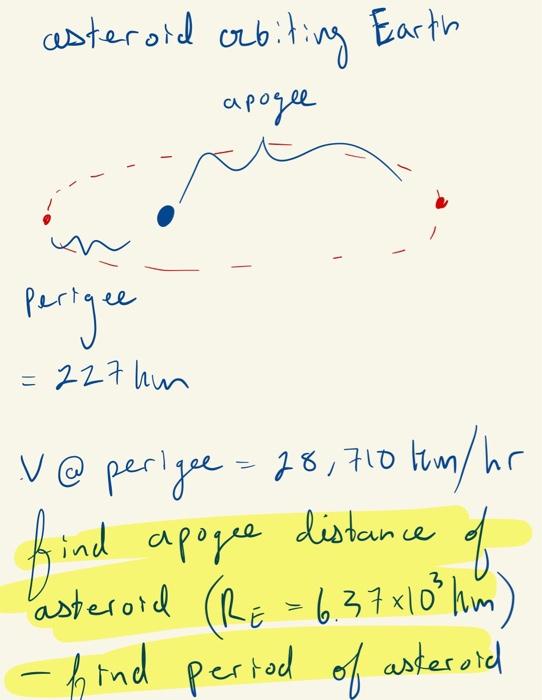 asteroid orbiting Earth
apogee
perigee
= 227 km
V @ perigee = 28,710 km/hr
find apogee distance of
asteroid (R_E = 6.37×10³ km)
– find period of asteroid